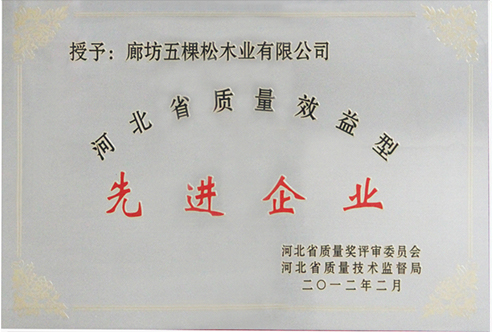 授予：廊坊五棵松木业有限公司
河北省质量效益型
先进企业
河北省质量奖评审委员会
河北省质量技术监督局
二〇一二年二月